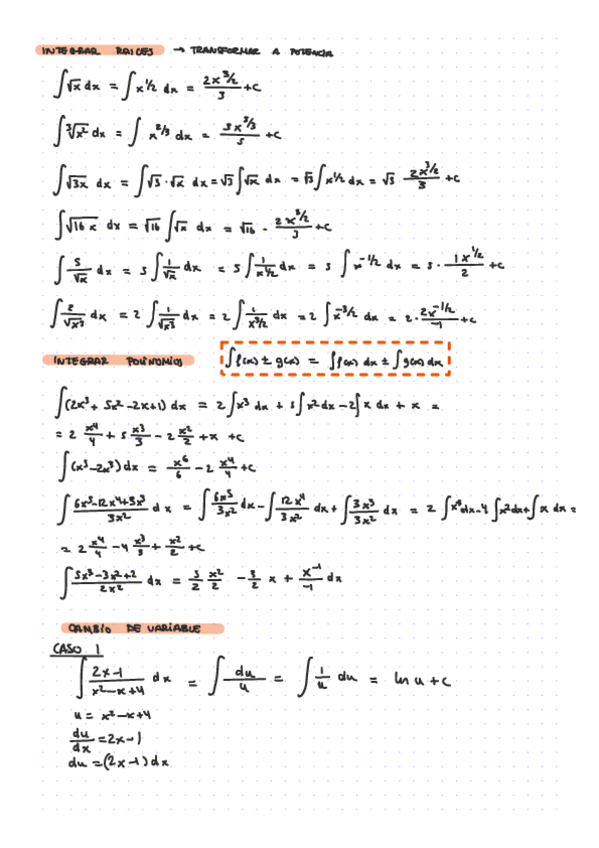 INTEGRAR RAICES → TRANSFORMAR A POTENCIA
∫√x dx = ∫x^1/2 dx = 2x^3/2 / 3 +C
∫∛x² dx = ∫ x^2/3 dx = 3x^5/3 / 5 +C
∫√3x dx = ∫√3·√x dx = √3∫√x dx = √3∫x^1/2 dx = √3 2x^3/2 / 3 +C
∫√16x dx = √16 ∫√x dx = √16 · 2x^3/2 / 3 +C
∫ 5/√x dx = 5∫ 1/√x dx = 5∫ 1/x^1/2 dx = 5 ∫ x^-1/2 dx = 5 · 1x^1/2 / 2 +C
∫ 2/√x³ dx = 2∫ 1/√x³ dx = 2∫ 1/x^3/2 dx = 2∫x^-3/2 dx = 2 · 2x^-1/2 / -1 +C
INTEGRAR POLINOMIOS ∫f(x) ± g(x) = ∫f(x) dx ± ∫g(x) dx
∫(2x³+ 5x²-2x+1) dx = 2∫x³ dx + 5∫x² dx - 2∫x dx + x =
= 2 x⁴/4 + 5 x³/3 - 2 x²/2 + x +C
∫(x⁵-2x³) dx = x⁶/6 - 2 x⁴/4 +C
∫ 6x⁵-12x⁴+3x³ / 3x² dx = ∫ 6x⁵/3x² dx - ∫ 12x⁴/3x² dx + ∫ 3x³/3x² dx = 2∫x³ dx - 4∫x² dx + ∫x dx =
= 2 x⁴/4 - 4 x³/3 + x²/2 +C
∫ 5x³-3x²+2 / 2x² dx = 5/2 x²/2 - 3/2 x + x^-1 / -1 dx
CAMBIO DE VARIABLE
CASO 1
∫ 2x-1 / x²-x+4 dx = ∫ du/u = ∫ 1/u du = ln u + C
u = x²-x+4
du/dx = 2x-1
du = (2x-1) dx